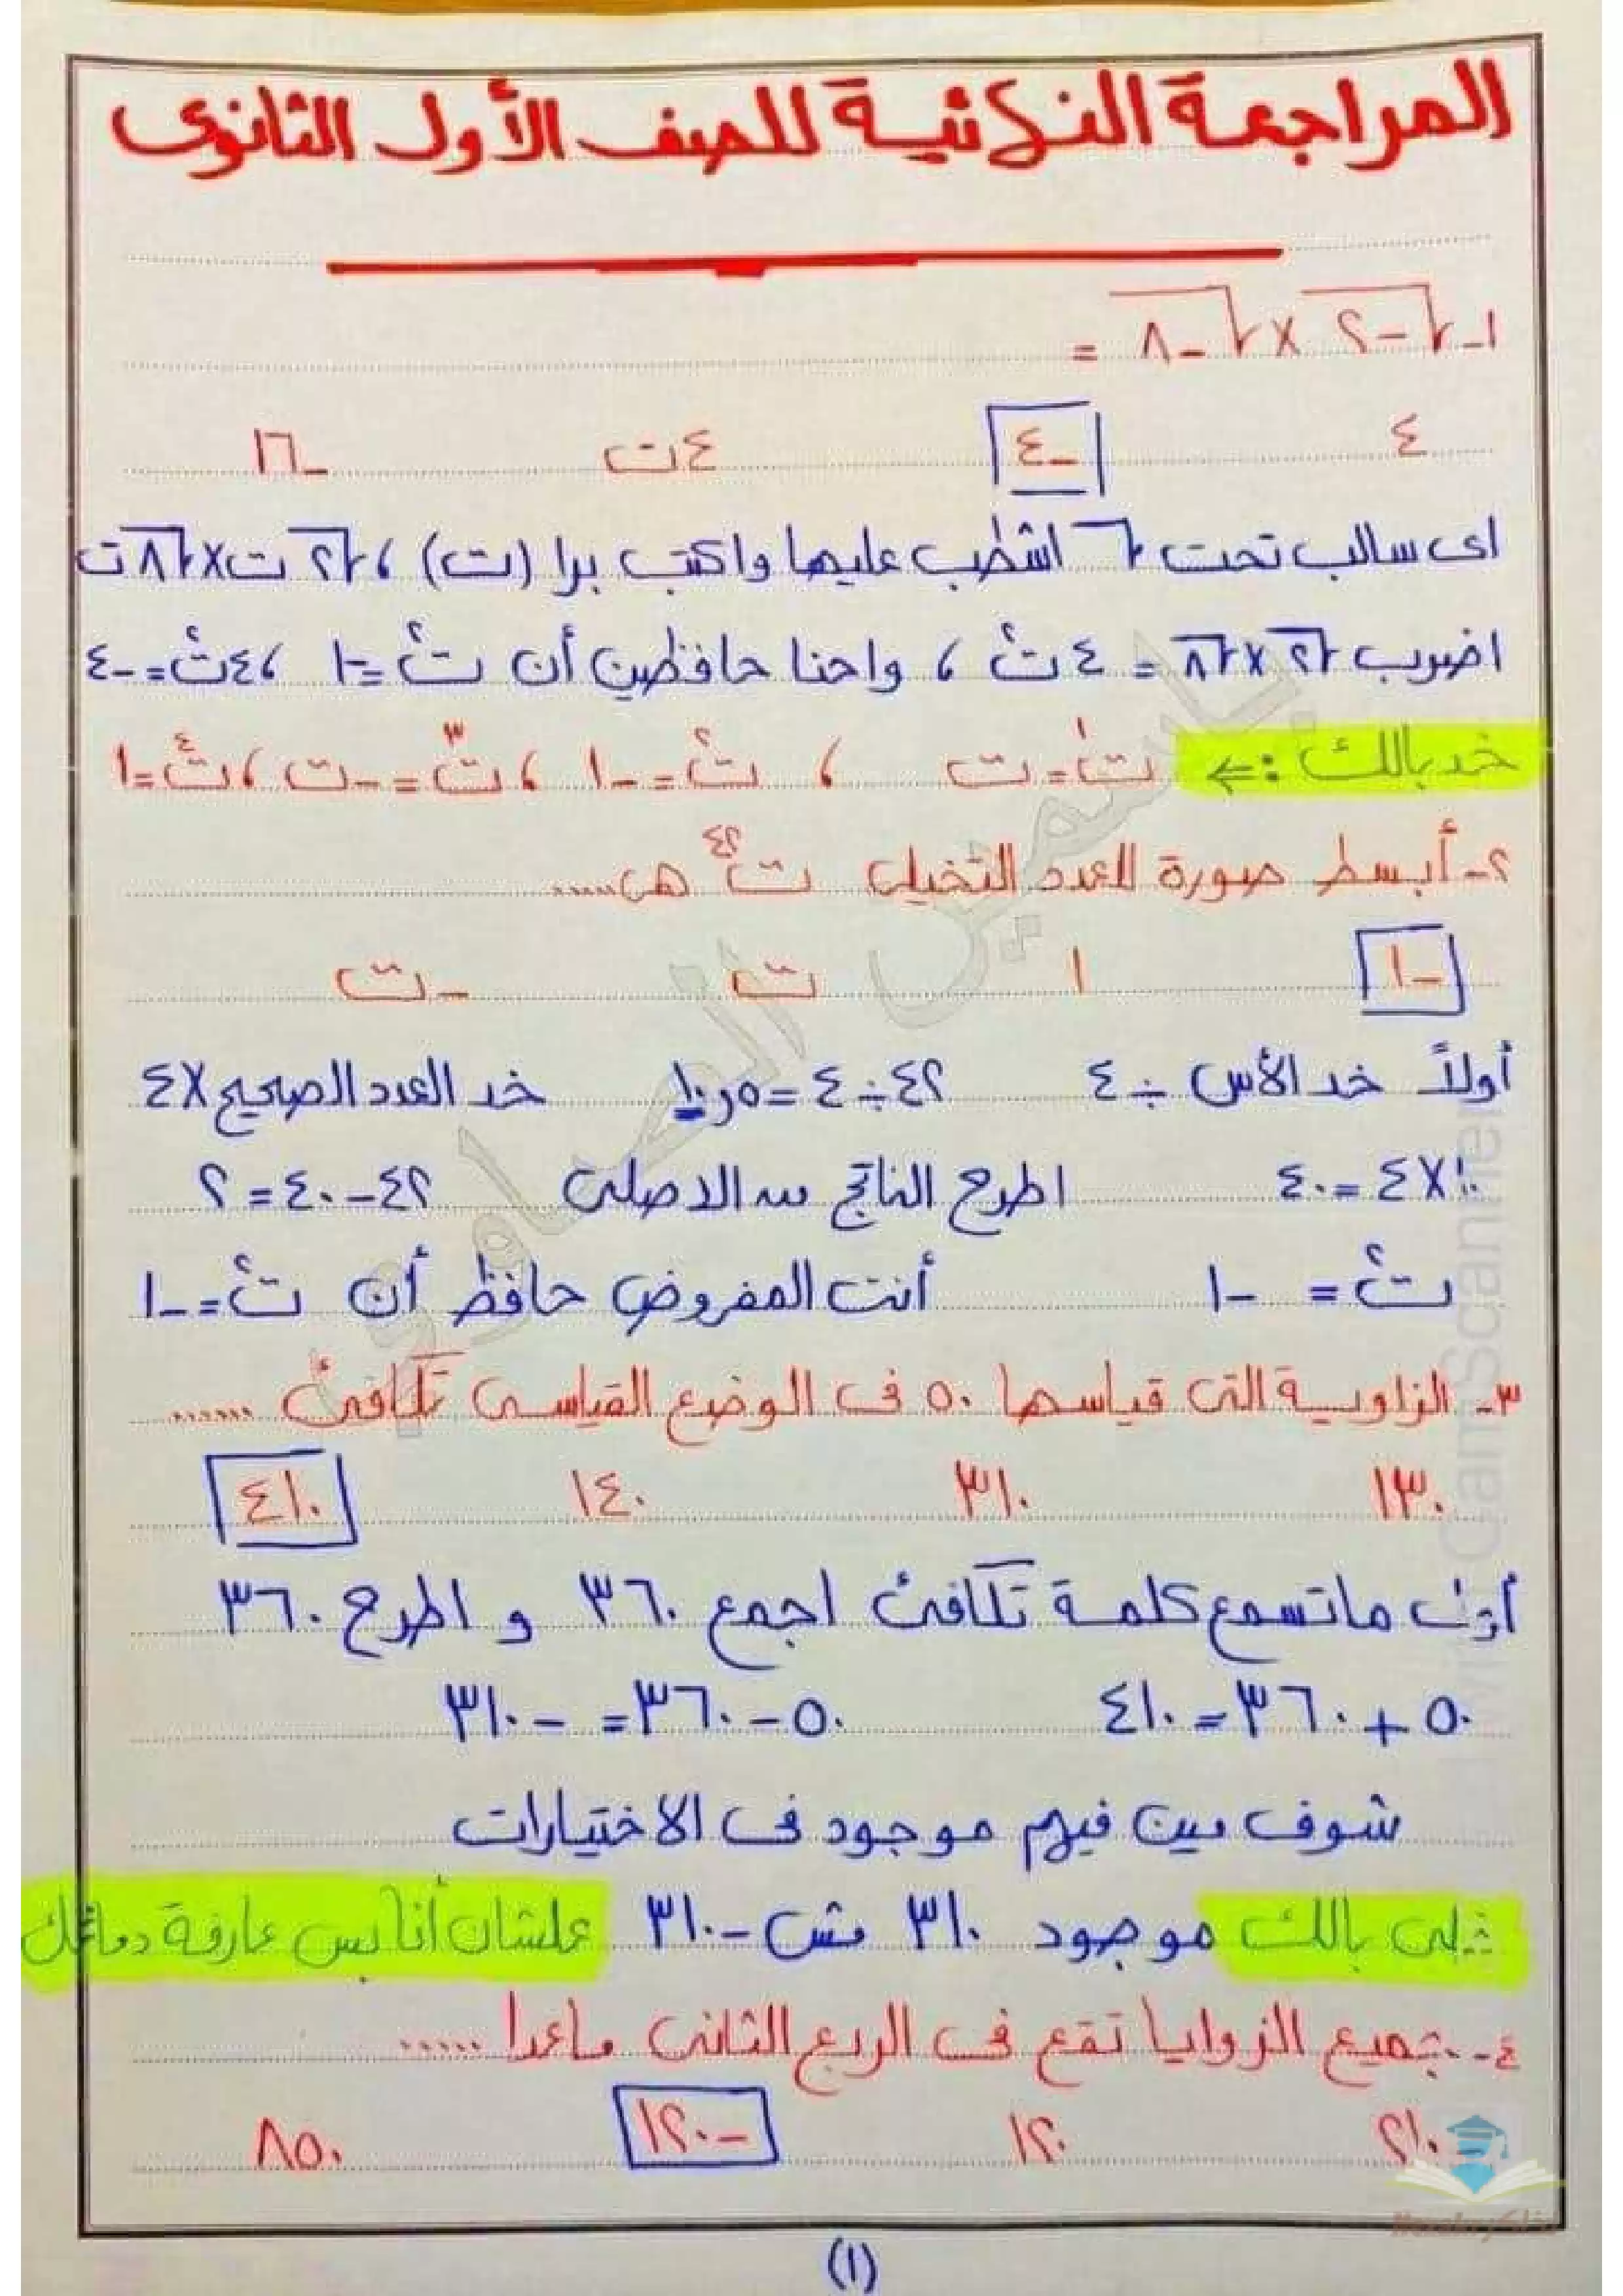 المراجعة النهائية للصف الأول الثانوى
١- √-٢ × √-٨ =
٤ -٤ ٤ت -١٦
اى سالب تحت √ اشطب عليها واكتب برا (ت) ، √٢ ت × √٨ ت
اضرب √٢ × √٨ = ٤ ت² ، واحنا حافظين أن ت² = -١ ، ٤ت² = -٤
خد بالك :← ت¹ = ت ، ت² = -١ ، ت³ = -ت ، ت⁴ = ١
٢- أبسط صورة للعدد التخيلى ت⁴² هى .....
-١ ١ ت -ت
أولاً خد الأس ÷ ٤ ٤٢ ÷ ٤ = ٥ر١٠ خد العدد الصحيح × ٤
١٠ × ٤ = ٤٠ اطرح الناتج من الاصلى ٤٢ - ٤٠ = ٢
ت² = -١ أنت المفروض حافظ أن ت² = -١
٣- الزاوية التى قياسها ٥٠ فى الوضع القياسى تكافئ ......
١٣٠ ٣١٠ ١٤٠ ٤١٠
أول ماتسمع كلمة تكافئ اجمع ٣٦٠ و اطرح ٣٦٠
٥٠ + ٣٦٠ = ٤١٠ ٥٠ - ٣٦٠ = -٣١٠
شوف مين فيهم موجود فى الاختيارات
خلى بالك موجود ٣١٠ مش -٣١٠ علشان أنا بس عارفة دماغك
٤- جميع الزوايا تقع فى الربع الثانى ماعدا .....
٢١٠ ١٢٠ -١٢٠ ٨٥٠
(١)
ياسمين الصاوي
CamScanner